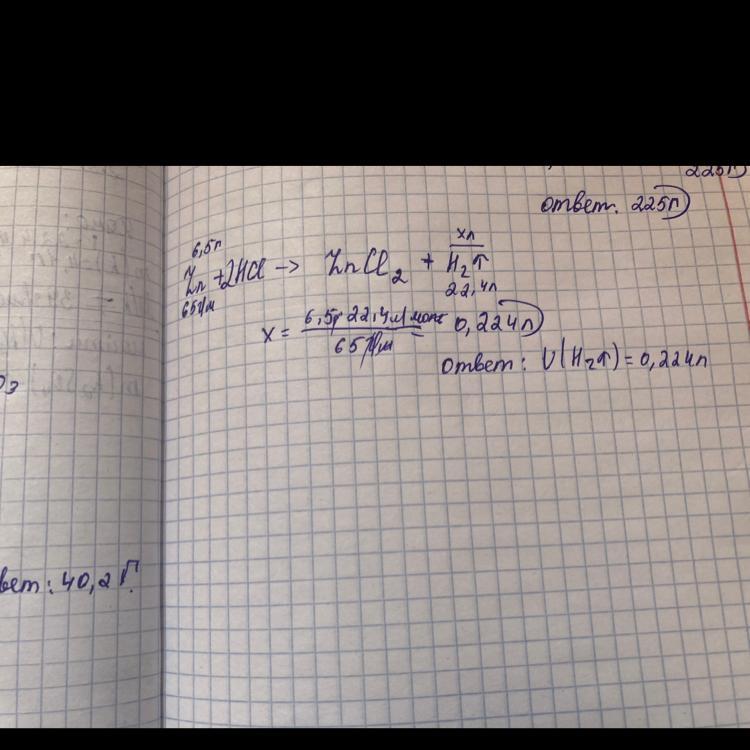 225л
ответ. 225л
6,5г хл
Zn + 2HCl -> ZnCl2 + H2↑
65г/м 22,4л
x = 6,5г 22,4л моль / 65г/м = 0,224л
ответ: V(H2↑) = 0,224л
O3
вет: 40,2 г.